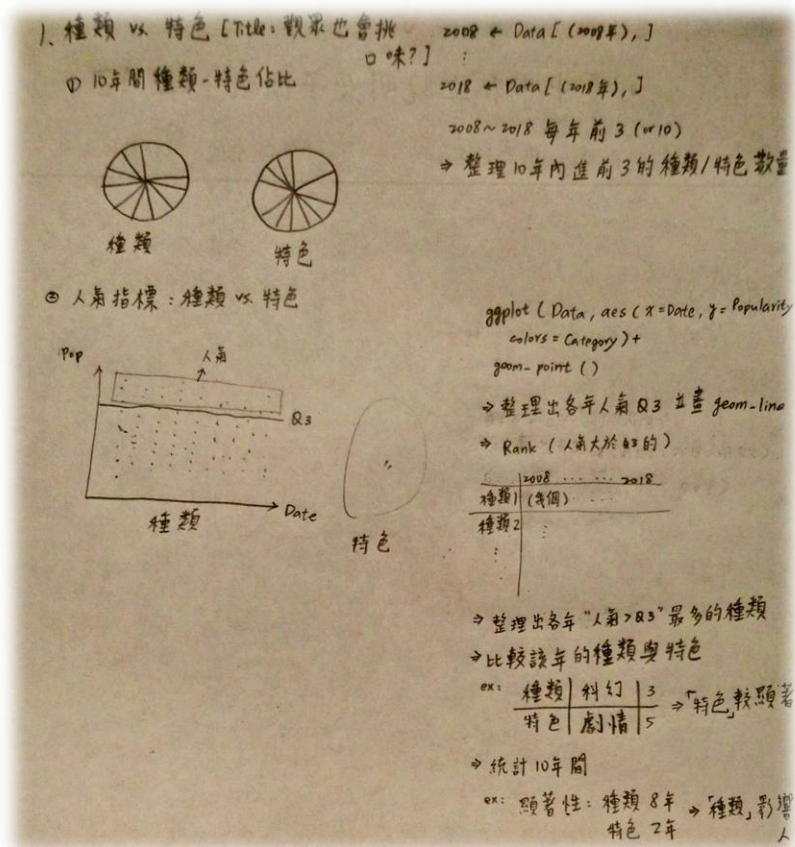 1、種類 vs. 特色 [Title: 觀眾也會挑
口味?]
① 10年間種類-特色佔比
種類
特色
② 人氣指標:種類 vs. 特色
Pop
人氣
Q3
Date
種類
特色
2008 ← Data[(2008年),]
:
2018 ← Data[(2018年),]
2008~2018 每年前3 (or 10)
⇒ 整理10年內進前3的種類/特色數量
ggplot (Data, aes (x=Date, y=Popularity
colors = Category) +
geom-point ()
⇒ 整理出各年人氣Q3 並畫 geom-line
⇒ Rank (人氣大於Q3的)
2008 ... ... 2018
種類1 (幾個) ...
種類2 :
:
⇒ 整理出各年"人氣>Q3"最多的種類
⇒ 比較該年的種類與特色
ex: 種類 | 科幻 | 3
特色 | 劇情 | 5 ⇒「特色」較顯著
⇒ 統計10年間
ex: 顯著性: 種類 8年 ⇒「種類」影響
特色 2年 人